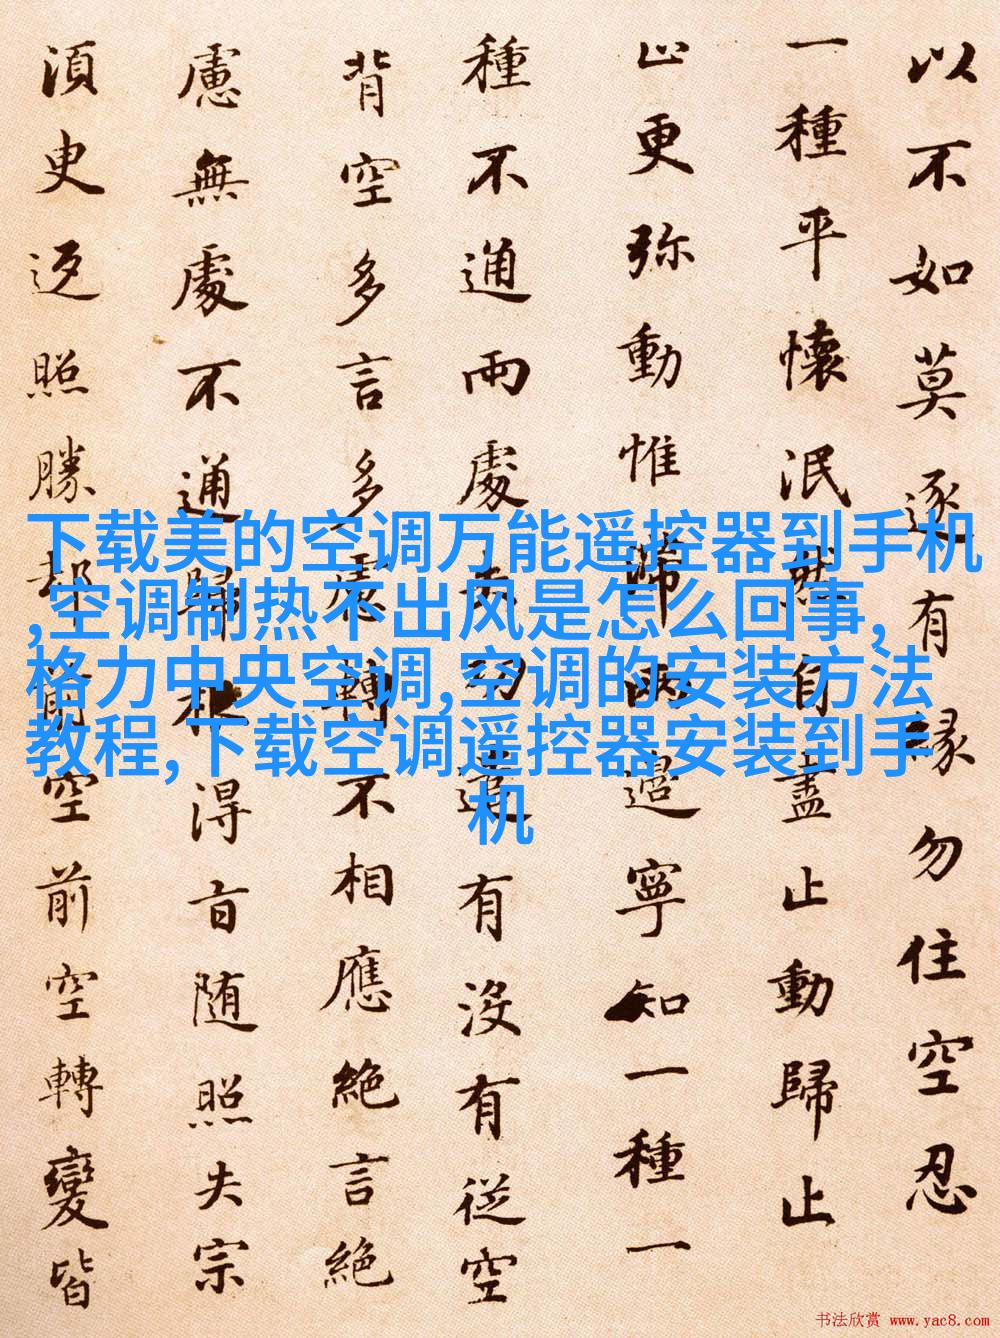 以不如莫逐有緣勿住空忍
一種平懷泯然自盡止動歸止
止更弥動惟滯兩邊寧知一種一
種不通兩處失功遣有沒有從空
背空多言多慮轉不相應絕言絕
慮無處不通歸根得旨随照失宗
須臾返照勝却前空前空轉變皆
下载美的空调万能遥控器到手机
,空调制热不出风是怎么回事,
格力中央空调,空调的安装方法
教程,下载空调遥控器安装到手
机
书法欣赏 www.yac8.com